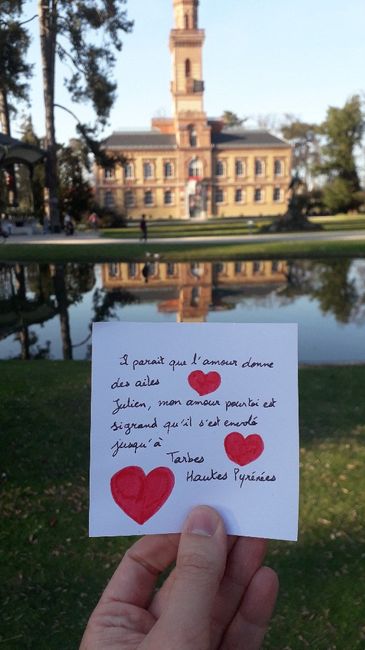 Il parait que l'amour donne
des ailes
Julien, mon amour pour toi est
si grand qu'il s'est envolé
jusqu'à
Tarbes
Hautes Pyrénées